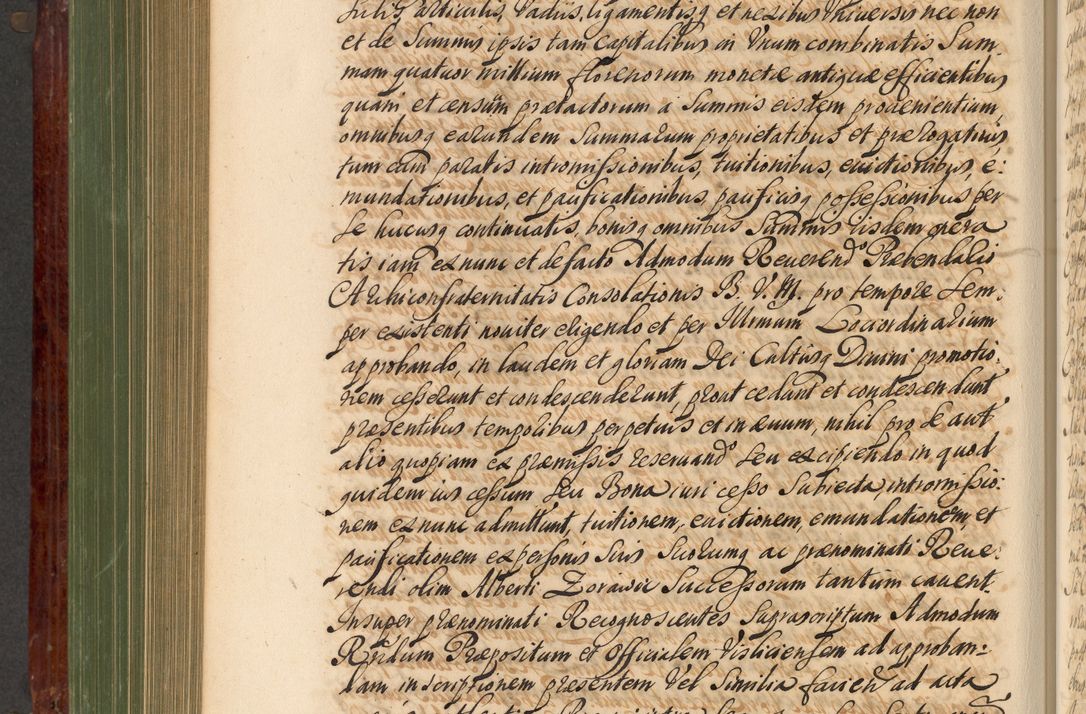 suis, articulis, vadiis, ligamentisq et nexibus universis nec non
et de Summis ipsis tam Capitalibus in Unum combinatis Sum-
mam quatuor millium florenorum monetæ antiquæ efficientibus
quam et censum prætactorum a Summis eisdem provenientium,
omnibusq earundem Summarum proprietatibus et prærogativis
tum cum paratis intromissionibus, tuitionibus, evictionibus, e-
mundationibus, et pacificationibus, pacificisq possessionibus per
se hucusq continuatis, bonisq omnibus Summis eisdem onera
tis iam ex nunc et de facto Admodum Reverendo Præbendario
Archiconfraternitatis Consolationis B. V. M. pro tempore sem-
per existenti noviter eligendo et per Illrmum Loci ordinarium
approbando, in laudem et gloriam Dei Cultusq Divini promotio-
nem cesserunt et condescenderunt, prout cedunt et condescendunt
præsentibus temporibus perpetuis et in ævum, nihil pro se aut
alio quopiam ex præmissis reservando seu excipiendo in quod
quidem ius cessum seu Bona iuri cesso Subiecta, intromissio-
nem ex nunc admittunt, tuitionem, evictionem, emundationem, et
pacificationem ex personis suis Suorumq ac prænominati Reve-
rendi olim Alberti Zorawic Successorum tantum cavent
Insuper prænominati Recognoscentes Suprascriptum Admodum
Rndum Præpositum et Officialem Visliciensem ad approban-
dam inscriptionem præsentem Vel Similia faciend ad acta